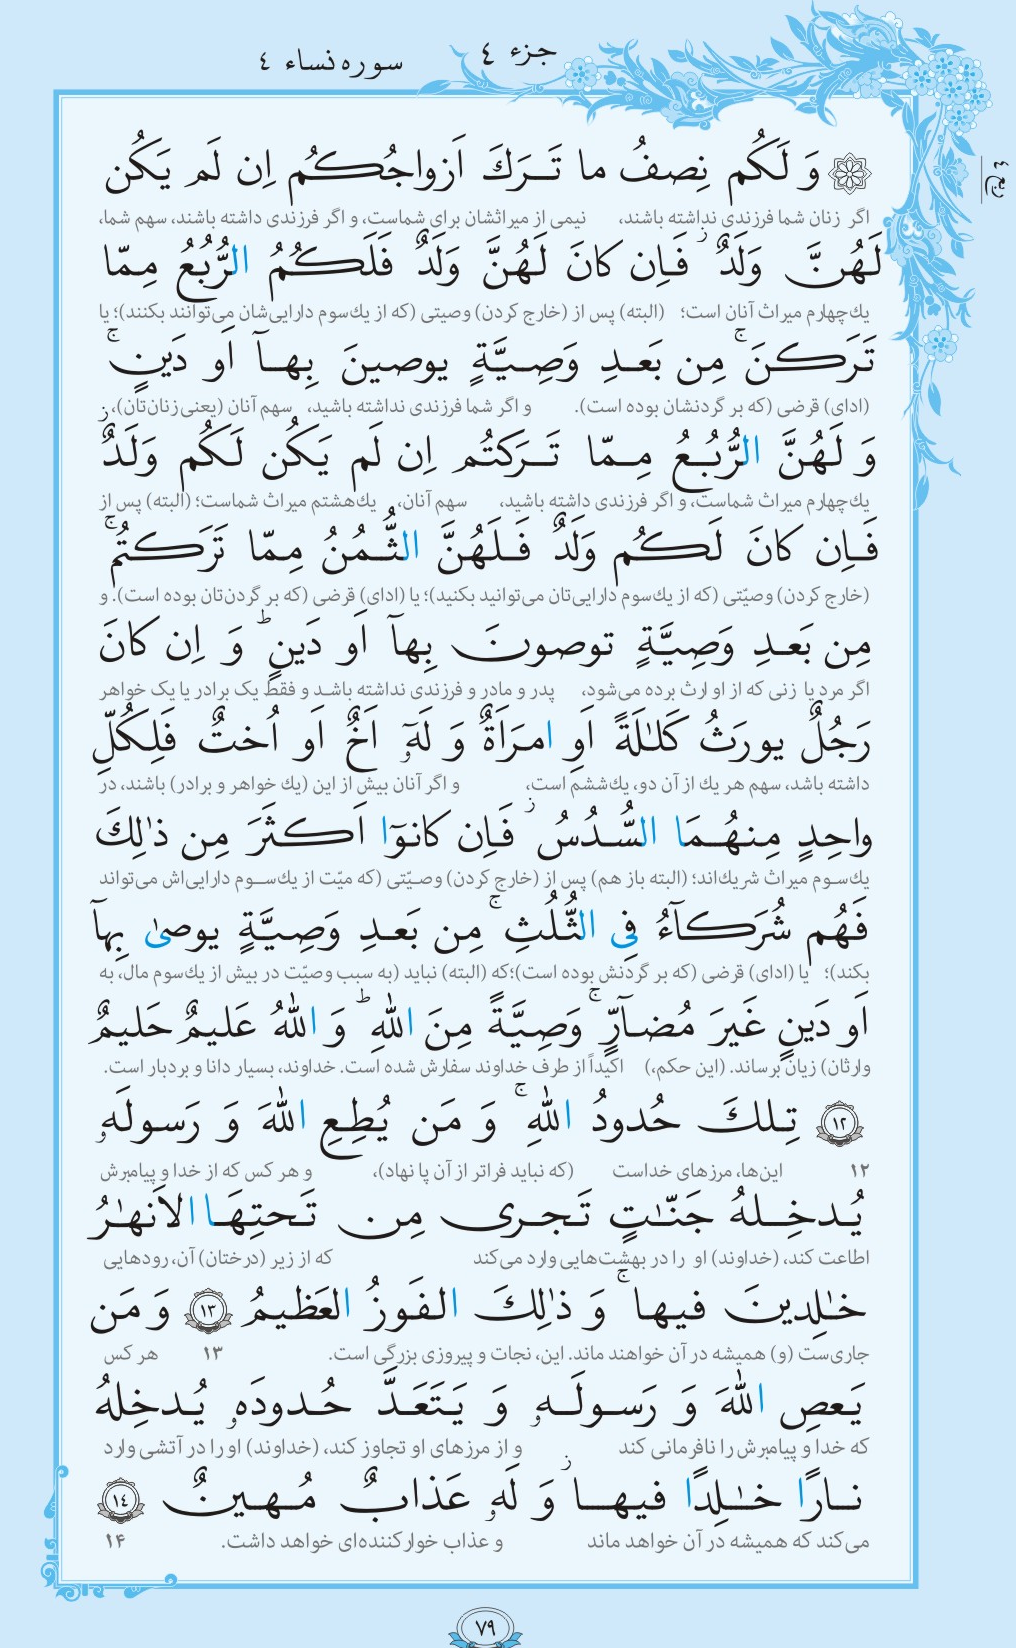 جزء ٤
سوره نساء ٤
ربع ٤
وَ لَكُم نِصفُ ما تَـرَكَ اَزواجُكُم اِن لَم يَكُن
اگر زنان شما فرزندی نداشته باشند، نیمی از میراثشان برای شماست، و اگر فرزندی داشته باشند، سهم شما،
لَهُنَّ وَلَدٌ ۚ فَاِن كانَ لَهُنَّ وَلَدٌ فَلَكُمُ الرُّبُعُ مِمّا
یك‌چهارم میراث آنان است؛ (البته) پس از (خارج کردن) وصیتی (که از یك‌سوم دارایی‌شان می‌توانند بکنند)؛ یا
تَرَكنَ ۚ مِن بَعدِ وَصِيَّةٍ يوصينَ بِهآ اَو دَينٍ ۚ
(ادای) قرضی (که بر گردنشان بوده است). و اگر شما فرزندی نداشته باشید، سهم آنان (یعنی زنان‌تان)،
وَ لَهُنَّ الرُّبُعُ مِمّا تَرَكتُم اِن لَم يَكُن لَكُم وَلَدٌ ۚ
یك‌چهارم میراث شماست، و اگر فرزندی داشته باشید، سهم آنان، یك‌هشتم میراث شماست؛ (البته) پس از
فَاِن كانَ لَكُم وَلَدٌ فَلَهُنَّ الثُّمُنُ مِمّا تَرَكتُم ۚ
(خارج کردن) وصیّتی (که از یك‌سوم دارایی‌تان می‌توانید بکنید)؛ یا (ادای) قرضی (که بر گردن‌تان بوده است). و
مِن بَعدِ وَصِيَّةٍ توصونَ بِهآ اَو دَينٍ ؕ وَ اِن كانَ
اگر مرد یا زنی که از او ارث برده می‌شود، پدر و مادر و فرزندی نداشته باشد و فقط یک برادر یا یک خواهر
رَجُلٌ يورَثُ كَلٰلَةً اَوِ امرَاَةٌ وَ لَهٓ اَخٌ اَو اُختٌ فَلِكُلِّ
داشته باشد، سهم هر یك از آن دو، یك‌ششم است، و اگر آنان بیش از این (یك خواهر و برادر) باشند، در
واحِدٍ مِنهُمَا السُّدُسُ ۚ فَاِن كانوٓا اَكثَرَ مِن ذٰلِكَ
یك‌سوم میراث شریك‌اند؛ (البته باز هم) پس از (خارج کردن) وصیّتی (که میّت از یك‌سوم دارایی‌اش می‌تواند
فَهُم شُرَكآءُ فِی الثُّلُثِ ۚ مِن بَعدِ وَصِيَّةٍ يوصىٰ بِهآ
بکند)؛ یا (ادای) قرضی (که بر گردنش بوده است)؛که (البته) نباید (به سبب وصیّت در بیش از یك‌سوم مال، به
اَو دَينٍ غَيرَ مُضآرٍّ ۚ وَصِيَّةً مِنَ اللهِ ؕ وَ اللهُ عَليمٌ حَليمٌ
وارثان) زیان برساند. (این حکم،) اکیداً از طرف خداوند سفارش شده است. خداوند، بسیار دانا و بردبار است.
١٢ تِلكَ حُدودُ اللهِ ۚ وَ مَن يُطِعِ اللهَ وَ رَسولَهٗ
۱۲ این‌ها، مرزهای خداست (که نباید فراتر از آن پا نهاد)، و هر کس که از خدا و پیامبرش
يُدخِلهُ جَنّٰتٍ تَجری مِن تَحتِهَا الاَنهٰرُ
اطاعت کند، (خداوند) او را در بهشت‌هایی وارد می‌کند که از زیر (درختان) آن، رودهایی
خٰلِدينَ فيها ۚ وَ ذٰلِكَ الفَوزُ العَظيمُ ١٣ وَ مَن
جاری‌ست (و) همیشه در آن خواهند ماند. این، نجات و پیروزی بزرگی است. ۱۳ هر کس
يَعصِ اللهَ وَ رَسولَهٗ وَ يَتَعَدَّ حُدودَهٗ يُدخِلهُ
که خدا و پیامبرش را نافرمانی کند و از مرزهای او تجاوز کند، (خداوند) او را در آتشی وارد
نارًا خٰلِدًا فيها ۚ وَ لَهٗ عَذابٌ مُهينٌ ١٤
می‌کند که همیشه در آن خواهد ماند و عذاب خوارکننده‌ای خواهد داشت. ۱۴
٧٩